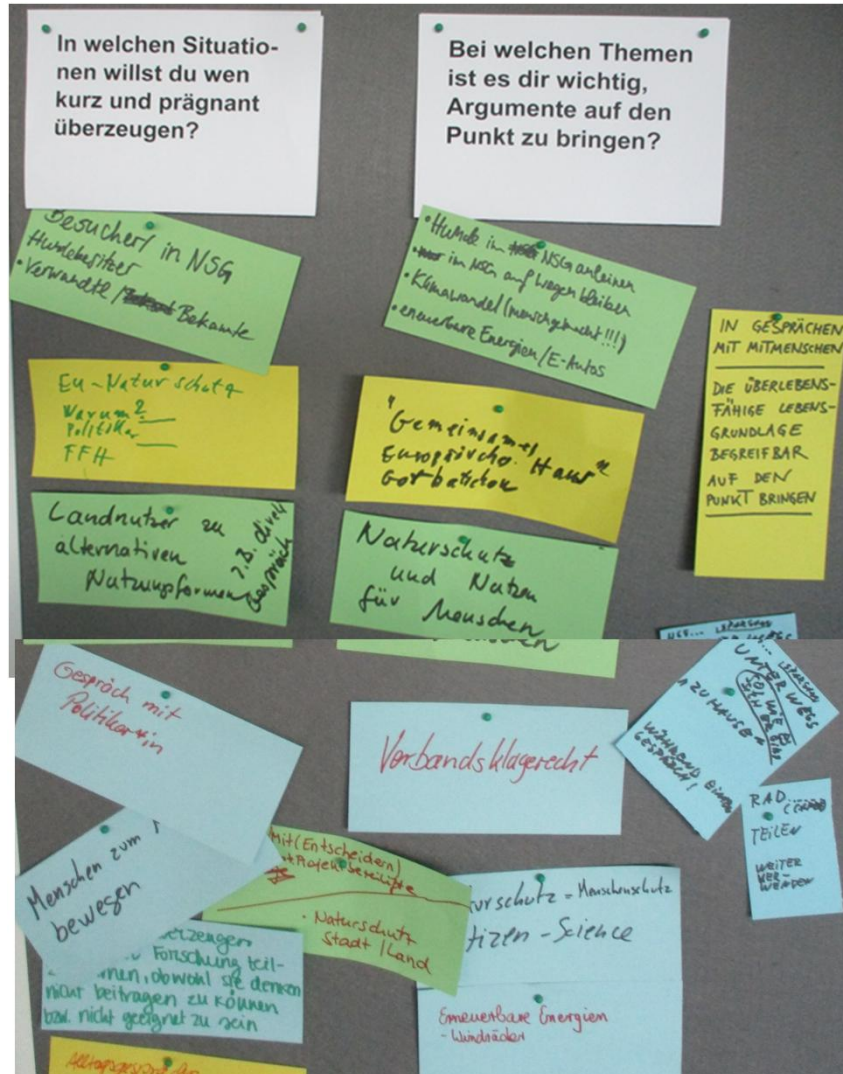 In welchen Situatio-
nen willst du wen
kurz und prägnant
überzeugen?
Bei welchen Themen
ist es dir wichtig,
Argumente auf den
Punkt zu bringen?
Besucher/ in NSG
Hundebesitzer
• Verwandte / Bekannte
• Hunde im NSG anleinen
• im NSG auf Wegen bleiben
• Klimawandel (menschgemacht!!!)
• erneuerbare Energien / E-Autos
IN GESPRÄCHEN
MIT MITMENSCHEN
DIE ÜBERLEBENS-
FÄHIGE LEBENS-
GRUNDLAGE
BEGREIFBAR
AUF DEN
PUNKT BRINGEN
EU-Naturschutz
Warum?
Politiker
FFH
"Gemeinsames
Europäisches Haus"
Gorbatschow
Landnutzer zu
alternativen
Nutzungsformen
z.B. direkt
Gespräch
Naturschutz
und Nutzen
für Menschen
Gespräch mit
Politiker*in
Verbandsklagerecht
UNTERWEGS
SO WIE ES
ZUHAUSE"
WÄHREND EINEM
GESPRÄCH!
RAD
TEILEN
WEITER
VER-
WENDEN
Menschen zum
bewegen
Mit (Entscheidern)
Projekt beteiligte
• Naturschutz
Stadt / Land
urschutz = Menschenschutz
tizen - Science
etzeugen
Forschung teil-
men, obwohl sie denken
nicht beitragen zu können
bzw. nicht geeignet zu sein
Erneuerbare Energien
- Windräder